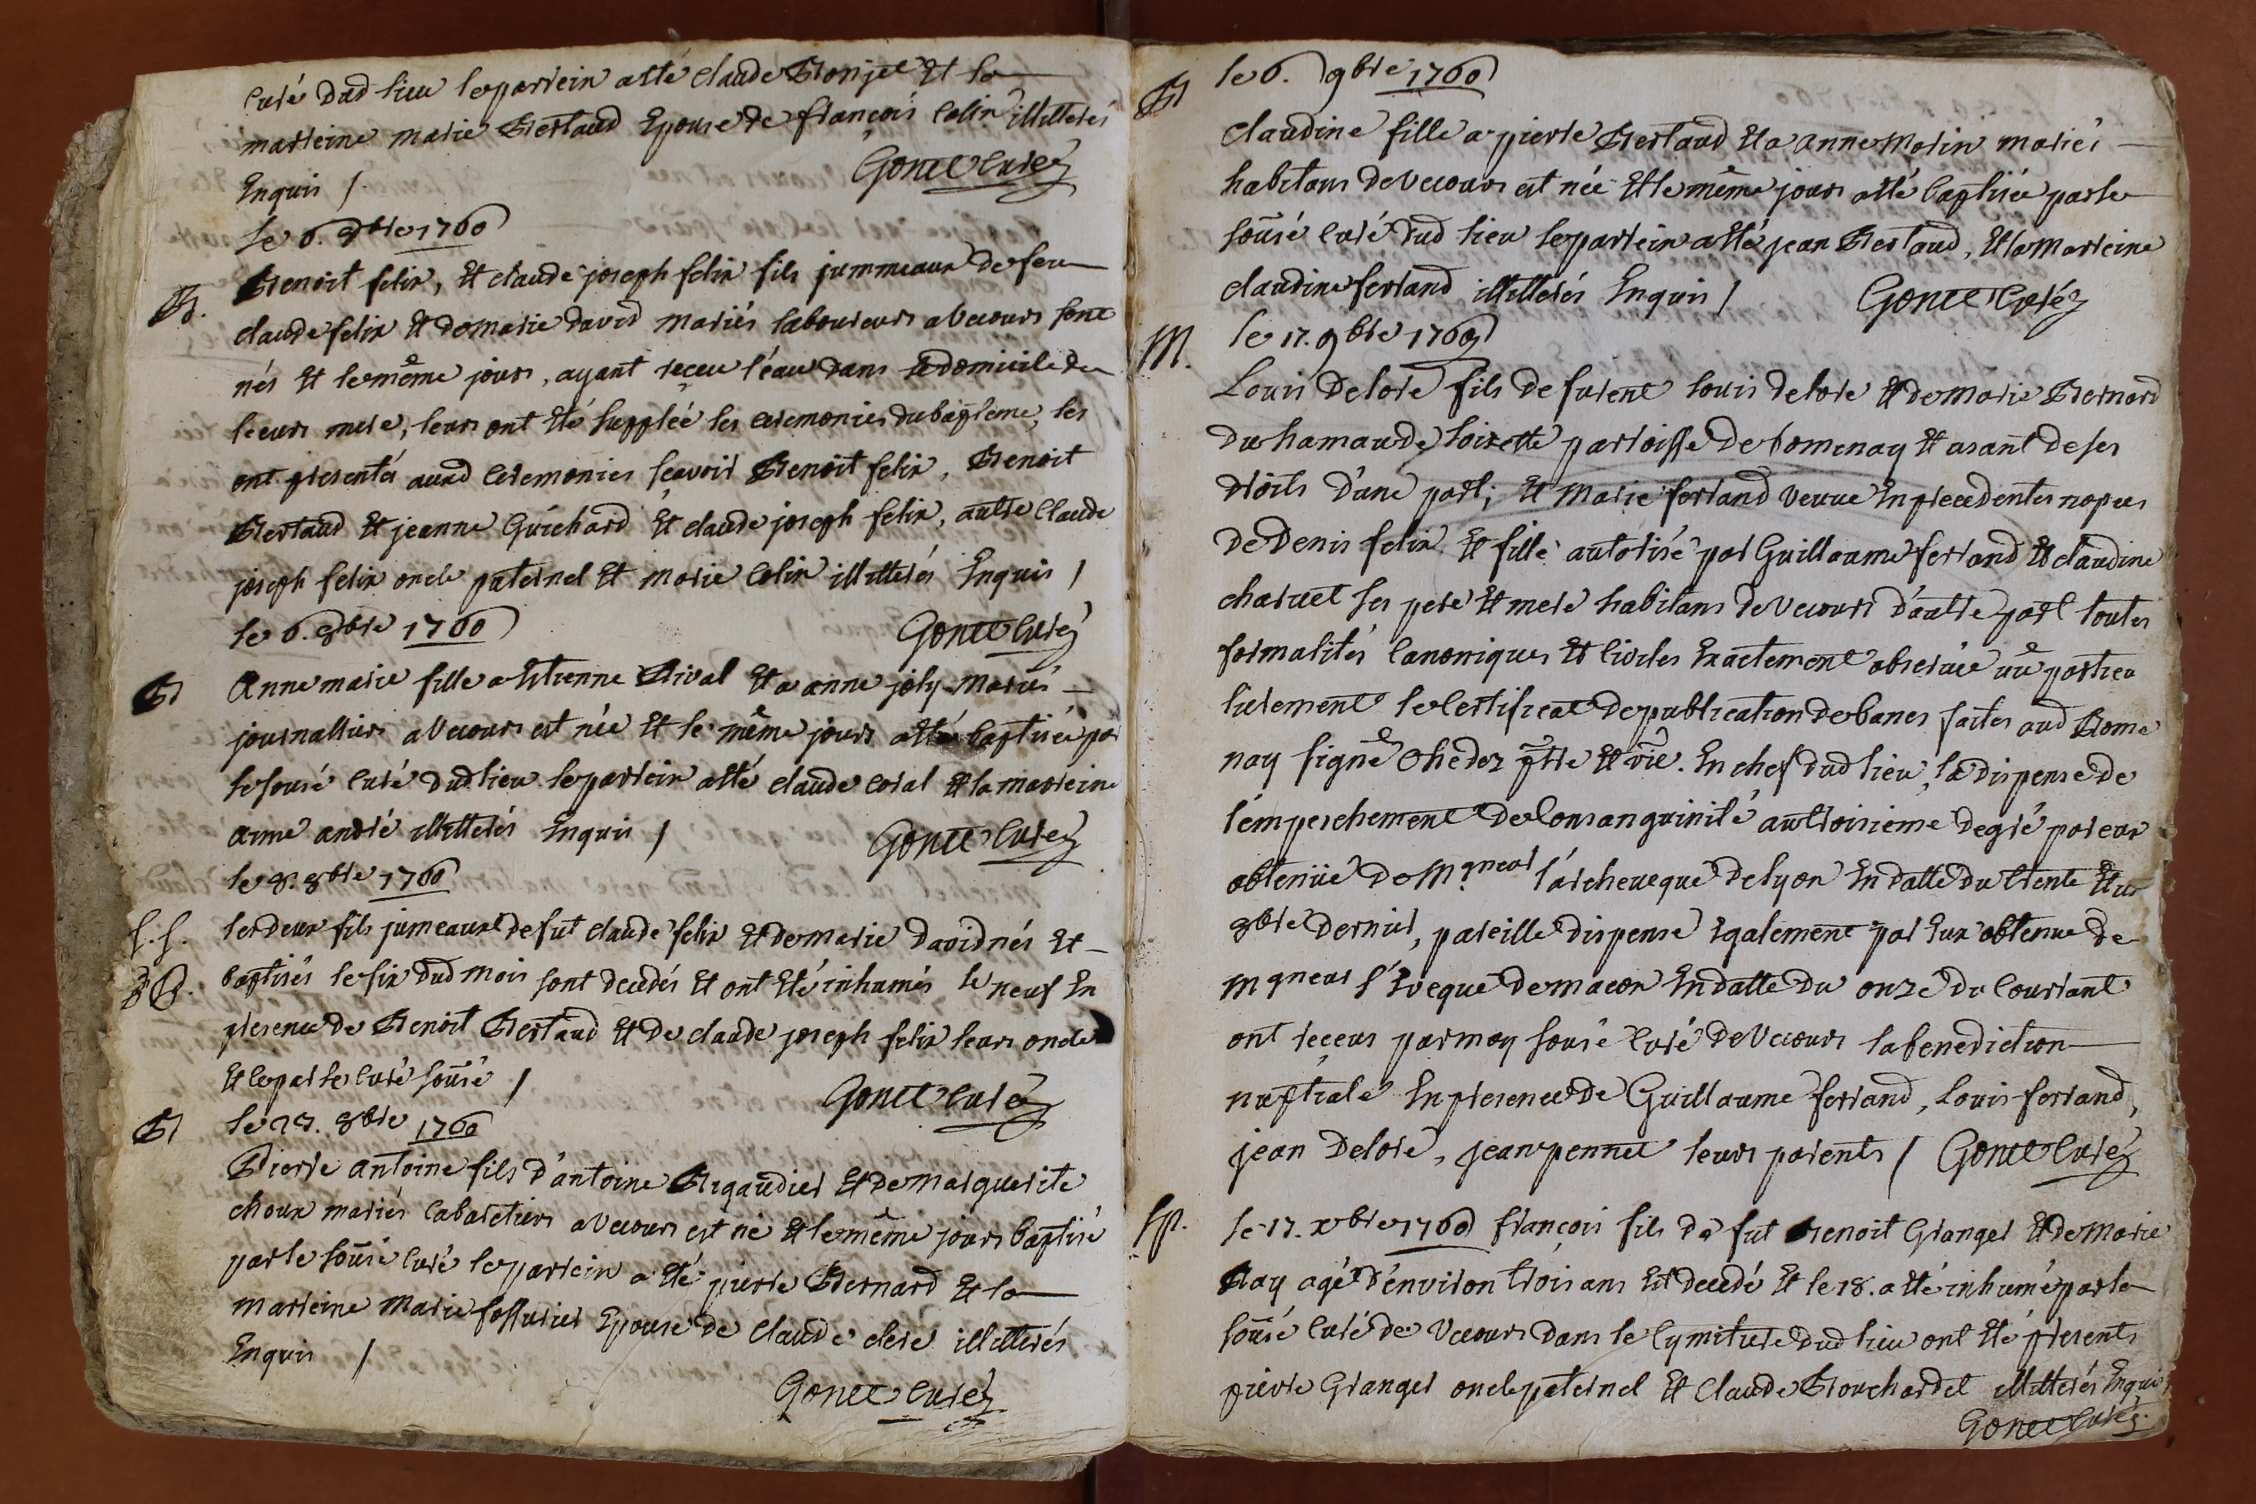 Curé dud lieu le parrein a été claude Bronjet Et la
marreine marie Bertaud Epouse de françois Colin illitterés
Enquis /. Gonet Curé
Le 6. 8bre 1760
B. Benoit felix, Et claude joseph felix fils jummeaux de feu
claude felix Et de marie david mariés laboureurs a Vecours sont
nés Et le même jours, ayant receu l'éau dans le domicile de
leeurs mere, leurs ont été supplée les ceremonies du baptême, les
ont presentés auxd ceremonies scavoir Benoit felix, Benoit
Bertaud Et jeanne Guichard Et claude joseph felix, autre Claude
joseph felix oncle paternel Et marie Colin illitterés Enquis /
le 6. 8bre 1760 Gonet Curé
B Anne marie fille a Etienne Rival Et a anne joly mariés
journalliers a Vecours est née Et le même jours a été baptisée par
le sousé Curé dud lieu le parrein a été claude Coral Et la marreine
anne andré illitterés Enquis / Gonet Curé
le 8. 8bre 1760
S. S. les deux fils jumeaux de fut claude felix Et de marie david nés Et
2 B. baptisés le six dud mois sont decedés Et ont Eté inhumés le neuf En
presence de Benoit Bertaud Et de claude joseph felix leurs oncle
Et le par le Curé sousé / Gonet Curé
B le 27. 8bre 1760
Pierre antoine fils d'antoine Brigaudier Et de marguerite
choux mariés Cabaretiers a Vecours est né Et le même jours baptisé
par le sousé Curé le parrein a été pierre Bernard Et la
marreine marie fossurier Epouse de Claude clere illitterés
Enquis / Gonet Curé
B le 6. 9bre 1760
Claudine fille a pierre Bertaud Et a anne Morin mariés
habitans de Vecours est née Et le même jours a été baptisée par le
sousé Curé dud lieu le parrein a été jean Bertaud, Et la Marreine
claudine ferrand illitterés Enquis / Gonet Curé
M. le 17. 9bre 1760
Louis Delore fils de furent Louis delore Et de Marie Bernard
du hamau de loizette parroisse de romenay Et usant de ses
droits d'une part; Et Marie ferrand veuve En precedentes nopces
de Denis felix Et fille autorisé par Guillaume ferrand Et claudine
charuet ses pere Et mere habitans de Vecours d'autre part toutes
formalités Canoniques Et Civiles Exactement observée vû particu
lierement le Certificat de publication de bancs faites aud Rome
nay signé Chedez ptre Et vic. En chef dud lieu, la dispense de
l'émpeschement de Consanguinité au troisieme degré par eux
obtenüe de Mgneur l'archeueque de lyon En datte du trente Et un
8bre dernier, pareille dispense Egalement par Eux obtenue de
Mgneur l'Eveque de macon En datte du onze du Courrant
ont receus par moy sousé Curé de Vecours la benediction
nuptiale En presence de Guillaume ferrand, Louis ferrand,
jean Delore, jean pennet leurs parents / Gonet Curé
Sp. le 17. xbre 1760 françois fils de fut Benoit Granger Et de Marie
Ray agé d'environ trois ans Est decedé Et le 18. a été inhumé par le
sousé Curé de Vecours dans le Cymiture dud lieu ont Eté presents
pierre Granger oncle paternel Et Claude Brouchardet illitterés Enquis
Gonet Curé.